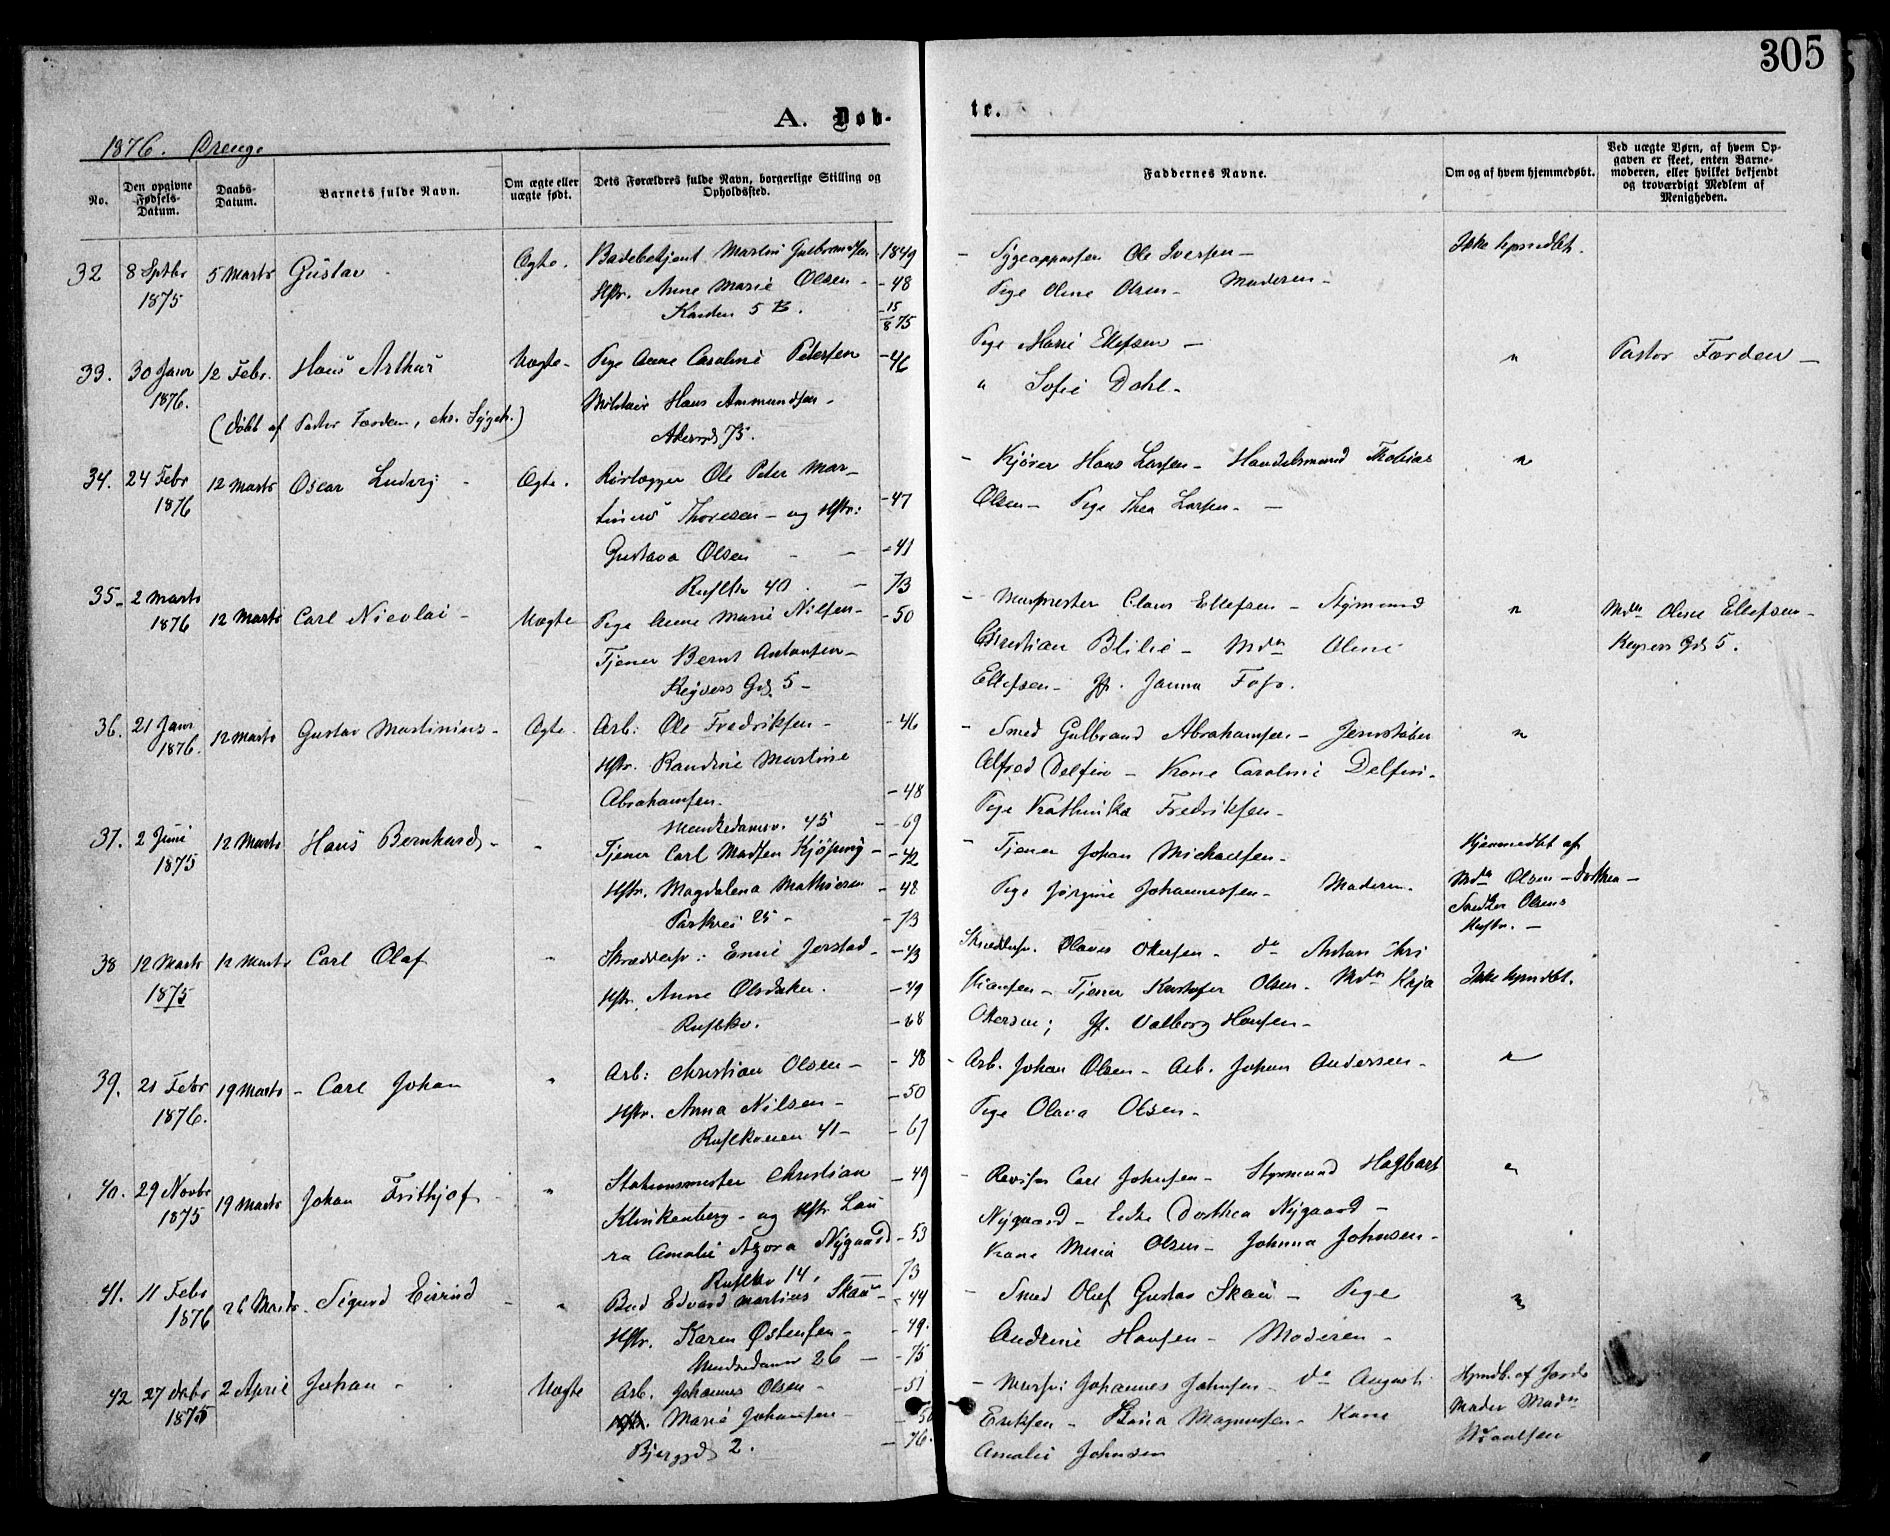 305
A. Døb-
te.
1876. Drenge
No.
Den opgivne Fødsels-Datum.
Daabs-Datum.
Barnets fulde Navn.
Om ægte eller uægte født.
Dets Forældres fulde Navn, borgerlige Stilling og Opholdssted.
Faddernes Navne.
Om og af hvem hjemmedøbt.
Ved uægte Børn, af hvem Opgaven er skeet, enten Barnemoderen, eller hvilket bekjendt og troværdigt Medlem af Menigheden.
32 8 Septbr 5 Marts Gustav Ægte. Badebetjent Martin Gulbrandsen -1849 - Ole Iversen - Ikke hjmdbt.
1875 Hstr. Anne Marie Olsen - -48 Pige Oline Olsen - Moderen -
5 B. 15/875
33. 30 Janr 12 Febr. Hans Arthur Uægte - Pige Anne Caroline Petersen -46 Pige Marie Ellefsen - " Pastor Færden -
1876. Militair Hans Ammundsen - " Sofie Dahl -
(døbt af Pastor Færden, Sygeh.) Akersgd 75.
34. 24 Febr 12 Marts Oscar Ludvig - Ægte. Rørlægger Ole Peter Mar- - Kjører Hans Larsen - Handelsmand Thobias "
1876 tinius Thoresen - og Hstr: -47 Olsen - Pige Thea Larsen -
Gustava Olsen - -41
Rusløkv 40 - 73
35. 2 Marts 12 Marts Carl Nicolai - Uægte Pige Anne Marie Nilsen - -50 - Claus Ellefsen - Styrmand " Mdm Oline Ellefsen -
1876 Tjener Bernt Antonsen - Christian Blilie - Mdm Oline Keysers Gd. 5.
Keysers Gd. 5 - Ellefsen - Jf. Janna Foss.
36. 21 Janr 12 Marts Gustav Martinius - Ægte. Arb: Ole Fredriksen - -46 - Smed Gulbrand Abrahamsen - Jernstøber "
1876. Hstr. Randine Martine Alfred Delfin - Kone Caroline Delfin -
Abrahamsen. -48 Pige Kathinka Fredriksen -
Munkedamsv. 45 - -69
37. 2 Juni 12 Marts Hans Bernhard - " Tjener Carl Madsen Kjøping - -42 - Tjener Johan Michaelsen - Hjemmedbt af
1875 Hstr. Magdalena Mathisen -48 Pige Jørgine Johannessen - Moderen. Mdm Olsen - Dorthea -
Parkvei 25 - -73 Snedker Olsens
Hustr. -
38 12 Marts 12 Marts Carl Olaf " Skræddersv: Emil Jorstad - -43 Skræddersv. Olaves Ottersen - do Anton Chri
1875 Hstr. Anne Olsdatter. -49 stiansen - Tjener Kristofer Olsen - Mdm Kaja Ikke hjmdbt.
Rusløkv. -68 Ottersen; Jf. Valborg Hansen -
39. 21 Febr 19 Marts - Carl Johan " Arb: Christian Olsen - -48 - Arb. Johan Olsen - Arb. Johan Andersen - "
1876. Hstr. Anna Nilsen - -50 Pige Olava Olsen -
Rusløkveien 41 - -67
40. 29 Novbr 19 Marts Johan Frithjof - " Stationsmester Christian -49 - Revisor Carl Johnsen - Styrmand Hagbart "
1875 Klinkenberg - og Hstr. Lau Nygaard - Enke Dorthea Nygaard -
ra Amalie Azora Nygaard -53 Kone Olsen - Johnna Johnsen -
Rusløkv 14. 73
41. 11 Febr 26 Marts. Sigurd Eivind - " Bud Edvard Martinus Skau - -44 - Smed Oluf Gustav Skau - Pige "
1876 Hstr. Karen Østensen - -49. Andrine Hansen - Moderen -
Munkedamsv 26 - -75
42 27 Oktbr 2 April Johan - Uægte Arb. Johannes Olsen - -51 - Johannes Johnsen - do August Hjmdb. af Jorde
1875 Marie Johansen - -50 Eriksen - Magnussen - Kone Moder Madm
Bjerggd 2. -76. Amalie Johnsen